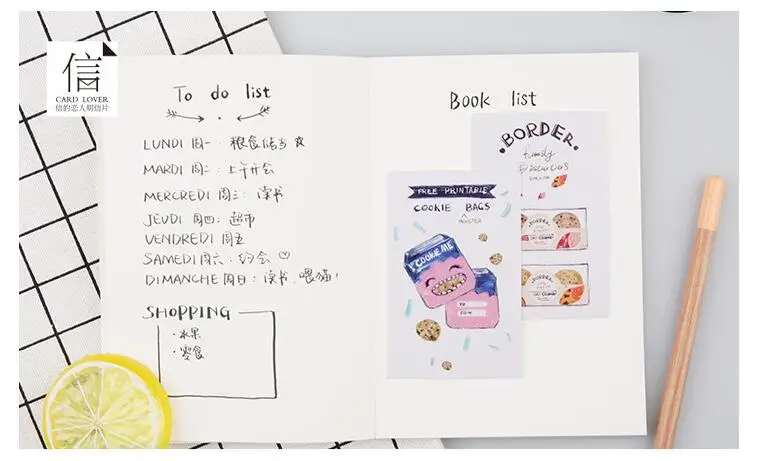 信
CARD LOVER
信的恋人明信片
To do list
LUNDI 周一: 粮食储备
MARDI 周二: 上午开会
MERCREDI 周三: 读书
JEUDI 周四: 超市
VENDREDI 周五
SAMEDI 周六: 约会 ♡
DIMANCHE 周日: 读书 喂猫!
SHOPPING
· 水果
· 零食
Book list
BORDER
family
biscuities
FREE PRINTABLE
COOKIE BAGS
MONSTER
COOKIE ME
TO
FROM
BORDER
BORDER